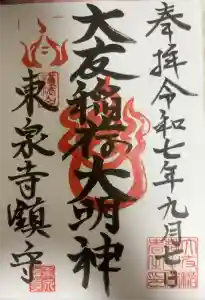 奉拝令和七年九月七日
大友稲荷大明神
東泉寺鎮守